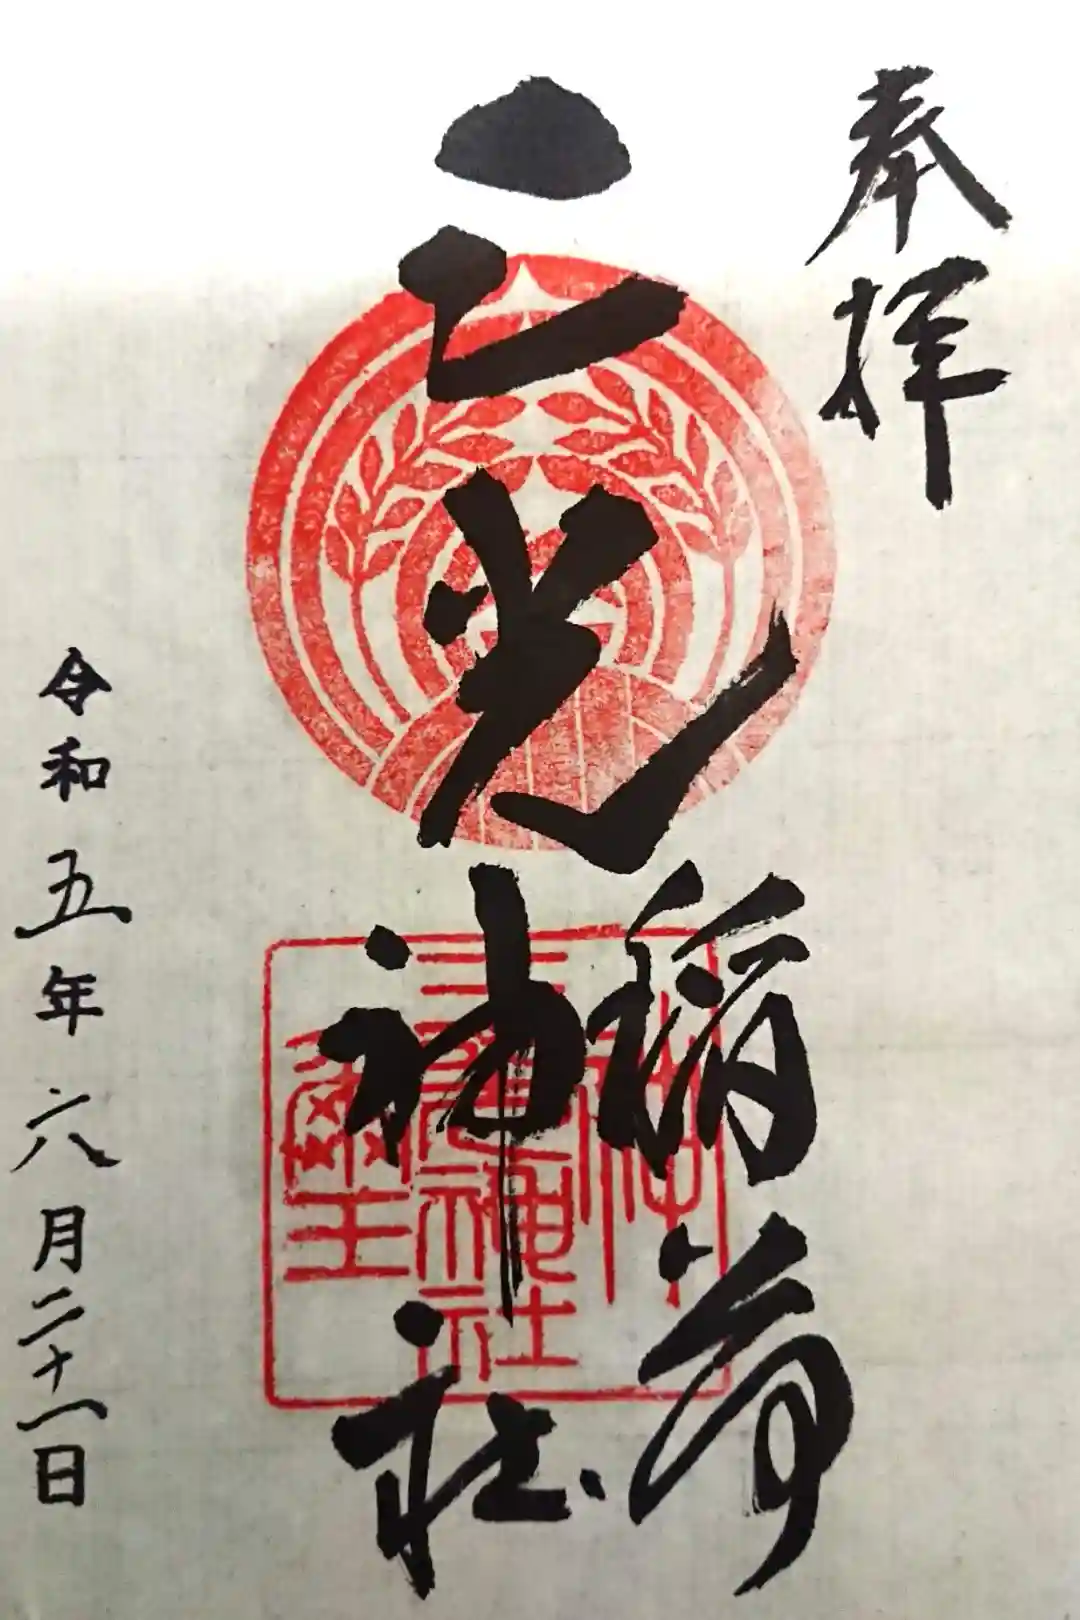 奉拝
三光
稲荷
神社
三光神社
璽
令和五年六月二十一日